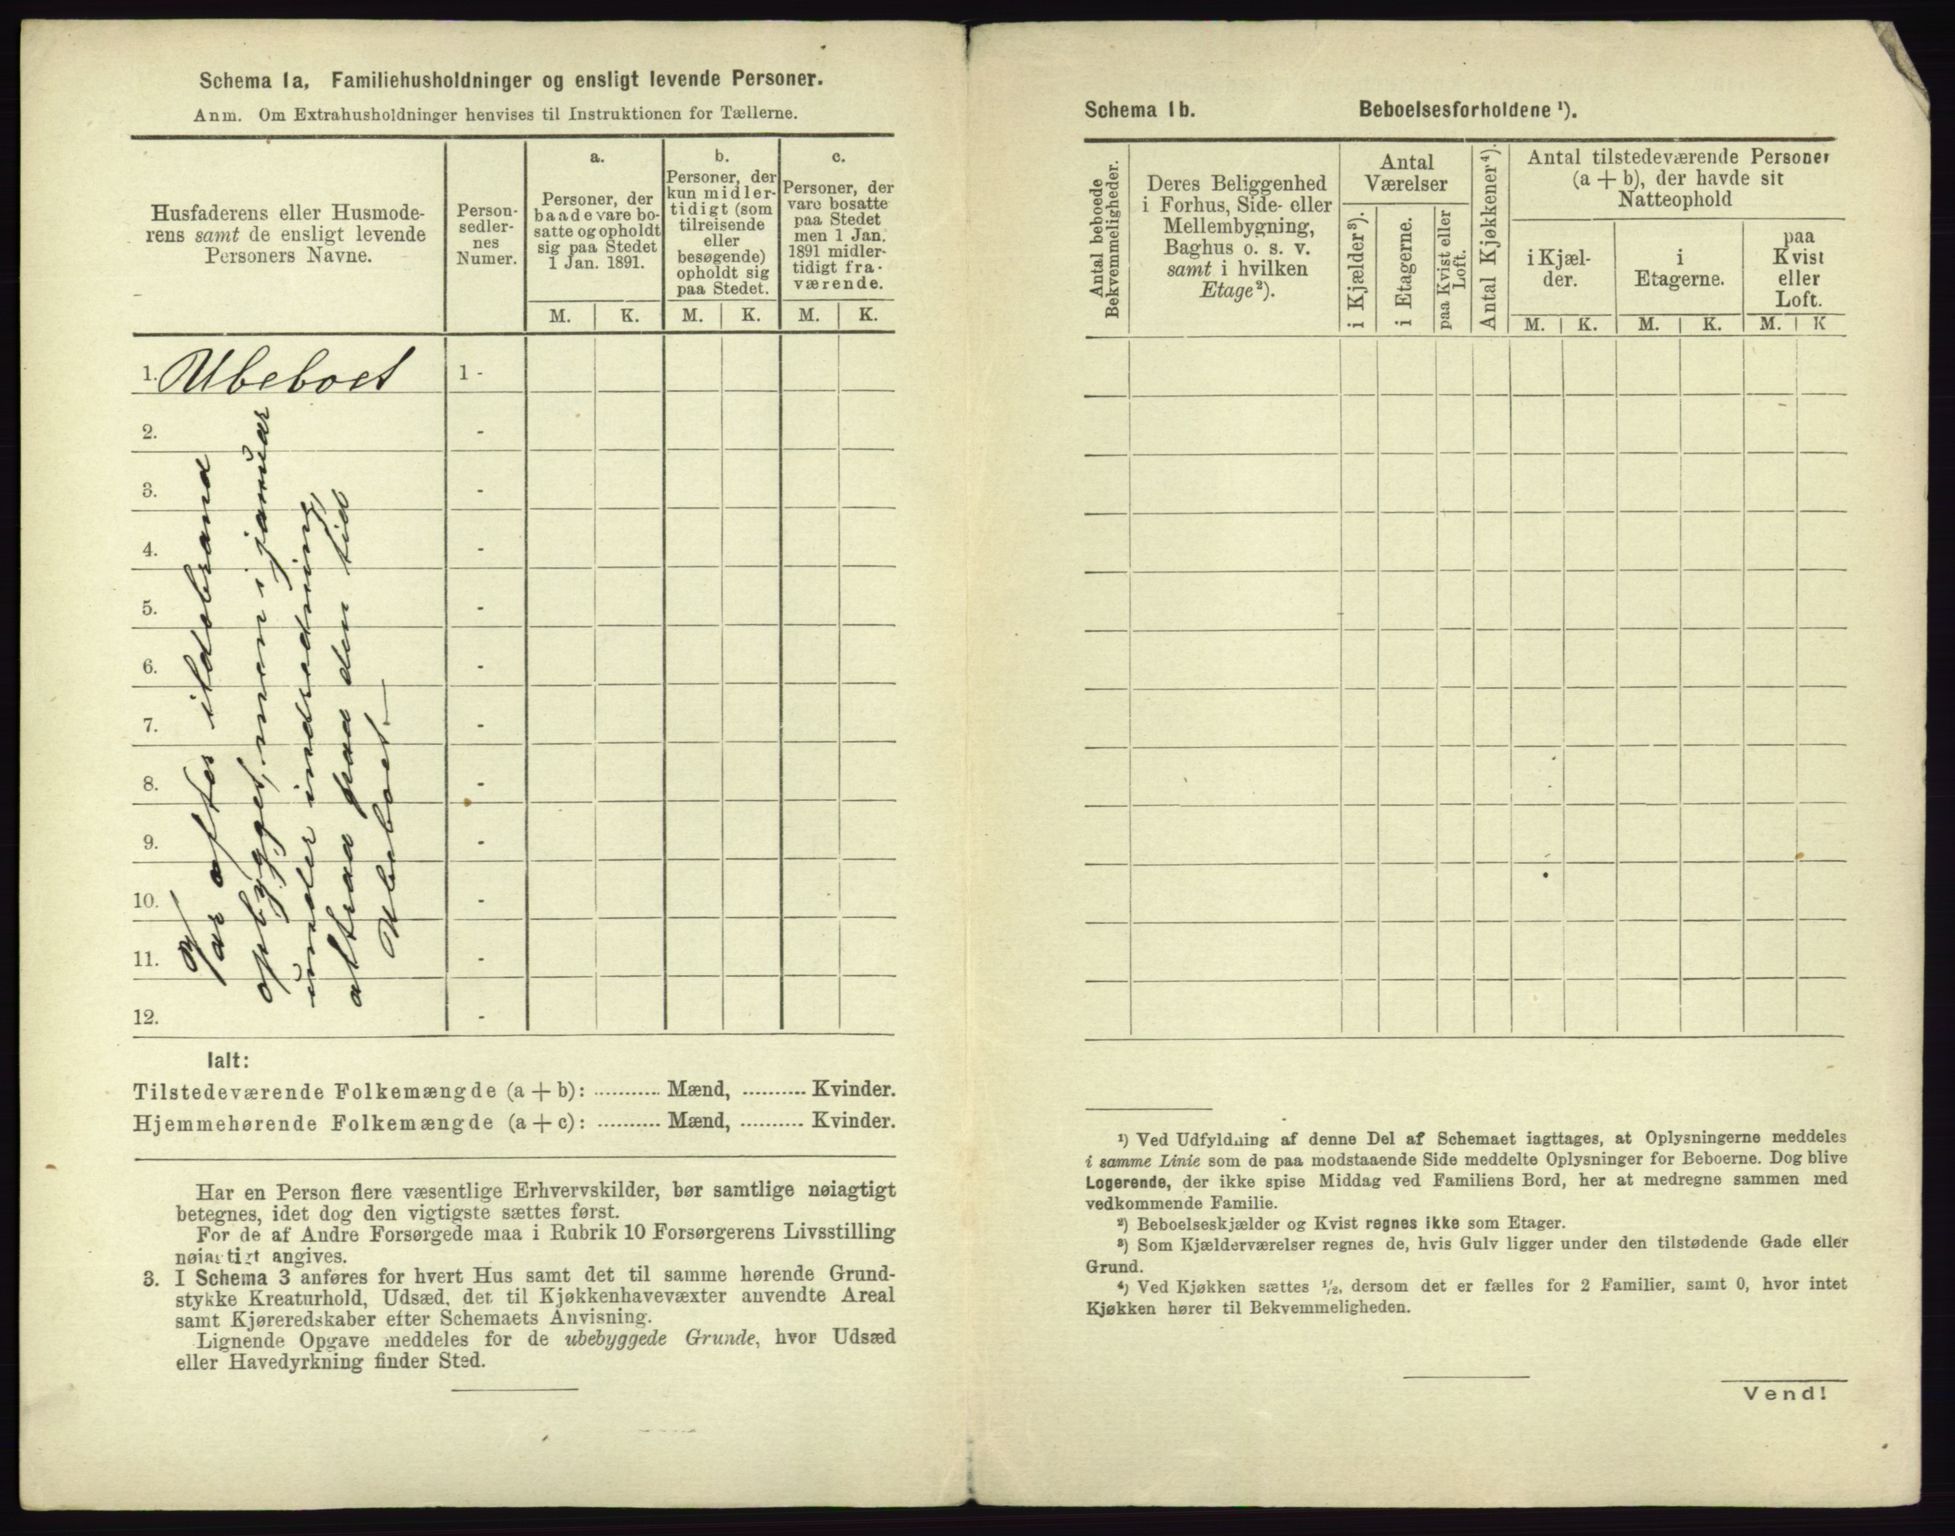 Schema 1a, Familiehusholdninger og ensligt levende Personer.
Anm. Om Extrahusholdninger henvises til Instruktionen for Tællerne.
Husfaderens eller Husmode-
rens samt de ensligt levende
Personers Navne.
Person-
sedler-
nes
Numer.
a.
Personer, der
baade vare bo-
satte og opholdt
sig paa Stedet
1 Jan. 1891.
b.
Personer, der
kun midler-
tidigt (som
tilreisende
eller
besøgende)
opholdt sig
paa Stedet.
c.
Personer, der
vare bosatte
paa Stedet
men 1 Jan.
1891 midler-
tidigt fra-
værende.
M. K. M. K. M. K.
1. Ubeboet 1 -
2. -
3. -
4. -
5. -
6. -
7. -
8. -
9. -
10. -
11. -
12. -
Var efter ildebrand
opbygget, men i januar
under indredning,
altsaa paa den tid
Ubeboet. —
Ialt:
Tilstedeværende Folkemængde (a + b): .......... Mænd, .......... Kvinder.
Hjemmehørende Folkemængde (a + c): .......... Mænd, .......... Kvinder.
Har en Person flere væsentlige Erhvervskilder, bør samtlige nøiagtigt
betegnes, idet dog den vigtigste sættes først.
For de af Andre Forsørgede maa i Rubrik 10 Forsørgerens Livsstilling
nøiagtigt angives.
3. I Schema 3 anføres for hvert Hus samt det til samme hørende Grund-
stykke Kreaturhold, Udsæd, det til Kjøkkenhavevæxter anvendte Areal
samt Kjøreredskaber efter Schemaets Anvisning.
Lignende Opgave meddeles for de ubebyggede Grunde, hvor Udsæd
eller Havedyrkning finder Sted.
Schema 1b. Beboelsesforholdene ¹).
Antal beboede
Bekvemmeligheder.
Deres Beliggenhed
i Forhus, Side- eller
Mellembygning,
Baghus o. s. v.
samt i hvilken
Etage²).
Antal
Værelser
i Kjælder³).
i Etagerne.
paa Kvist eller
Loft.
Antal Kjøkkener⁴).
Antal tilstedeværende Personer
(a + b), der havde sit
Natteophold
i Kjæl-
der.
i
Etagerne.
paa
Kvist
eller
Loft.
M. K. M. K. M. K
¹) Ved Udfyldning af denne Del af Schemaet iagttages, at Oplysningerne meddeles
i samme Linie som de paa modstaaende Side meddelte Oplysninger for Beboerne. Dog blive
Logerende, der ikke spise Middag ved Familiens Bord, her at medregne sammen med
vedkommende Familie.
²) Beboelseskjælder og Kvist regnes ikke som Etager.
³) Som Kjælderværelser regnes de, hvis Gulv ligger under den tilstødende Gade eller
Grund.
⁴) Ved Kjøkken sættes ¹/₂, dersom det er fælles for 2 Familier, samt 0, hvor intet
Kjøkken hører til Bekvemmeligheden.
Vend!